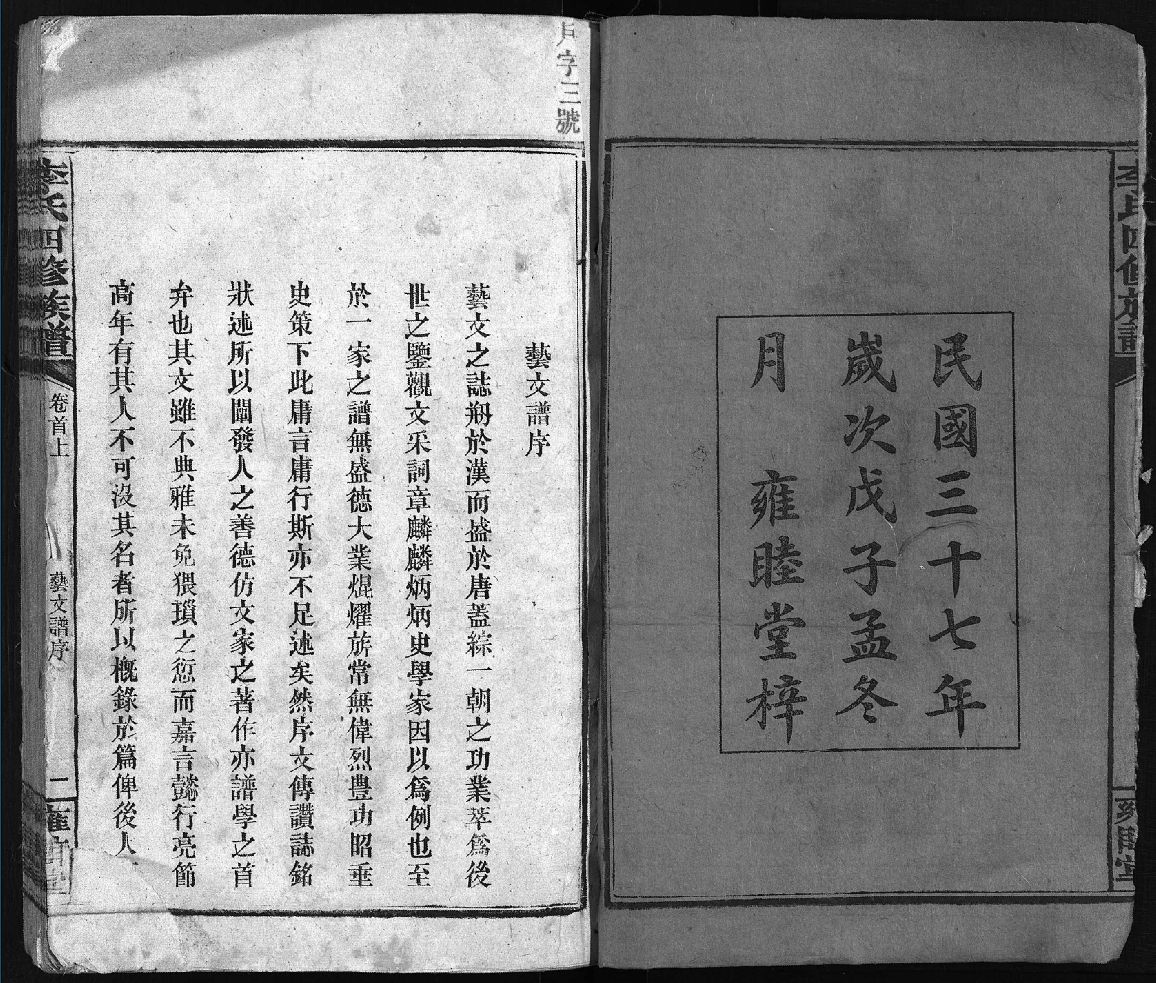 民國三十七年
歲次戊子孟冬
月 雍睦堂梓
李氏四修族譜
雍睦堂
月字三號
藝文譜序
藝文之誌刱於漢而盛於唐蓋綜一朝之功業萃爲後
世之鑒觀文采詞章麟麟炳炳史學家因以爲例也至
於一家之譜無盛德大業焜燿旂常無偉烈豊功昭垂
史策下此庸言庸行斯亦不足述矣然序文傳讚誌銘
狀述所以闡發人之善德仿文家之著作亦譜學之首
弁也其文雖不典雅未免猥瑣之愆而嘉言懿行亮節
高年有其人不可沒其名者所以概錄於篇俾後人
李氏四修族譜
卷首上
藝文譜序
二
雍睦堂